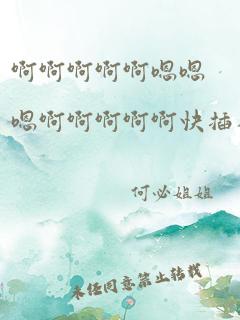 啊啊啊啊啊嗯嗯
嗯啊啊啊啊啊快插
何必姐姐
未经同意禁止转载